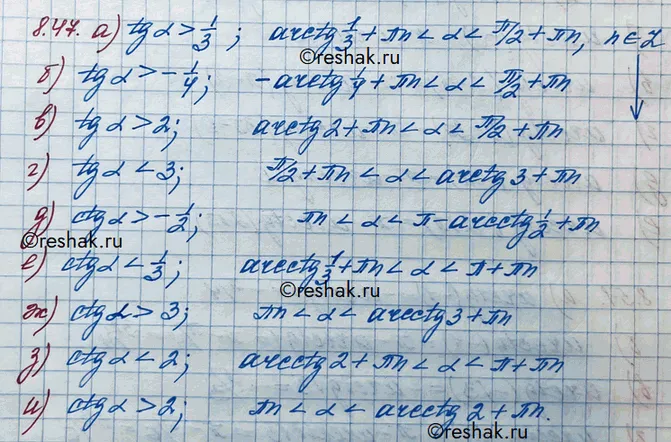 8.47. а) tgα > 1/3 ; arctg 1/3 + πn < α < π/2 + πn, n∈Z
©reshak.ru
б) tgα > -1/4; -arctg 1/4 + πn < α < π/2 + πn
в) tgα > 2; arctg 2 + πn < α < π/2 + πn
г) tgα < 3; π/2 + πn < α < arctg 3 + πn
д) ctgα > -1/2; πn < α < π - arcctg 1/2 + πn
©reshak.ru
е) ctgα < 1/3; arcctg 1/3 + πn < α < π + πn
©reshak.ru
ж) ctgα > 3; πn < α < arcctg 3 + πn
з) ctgα < 2; arcctg 2 + πn < α < π + πn
и) ctgα > 2; πn < α < arcctg 2 + πn.
©reshak.ru